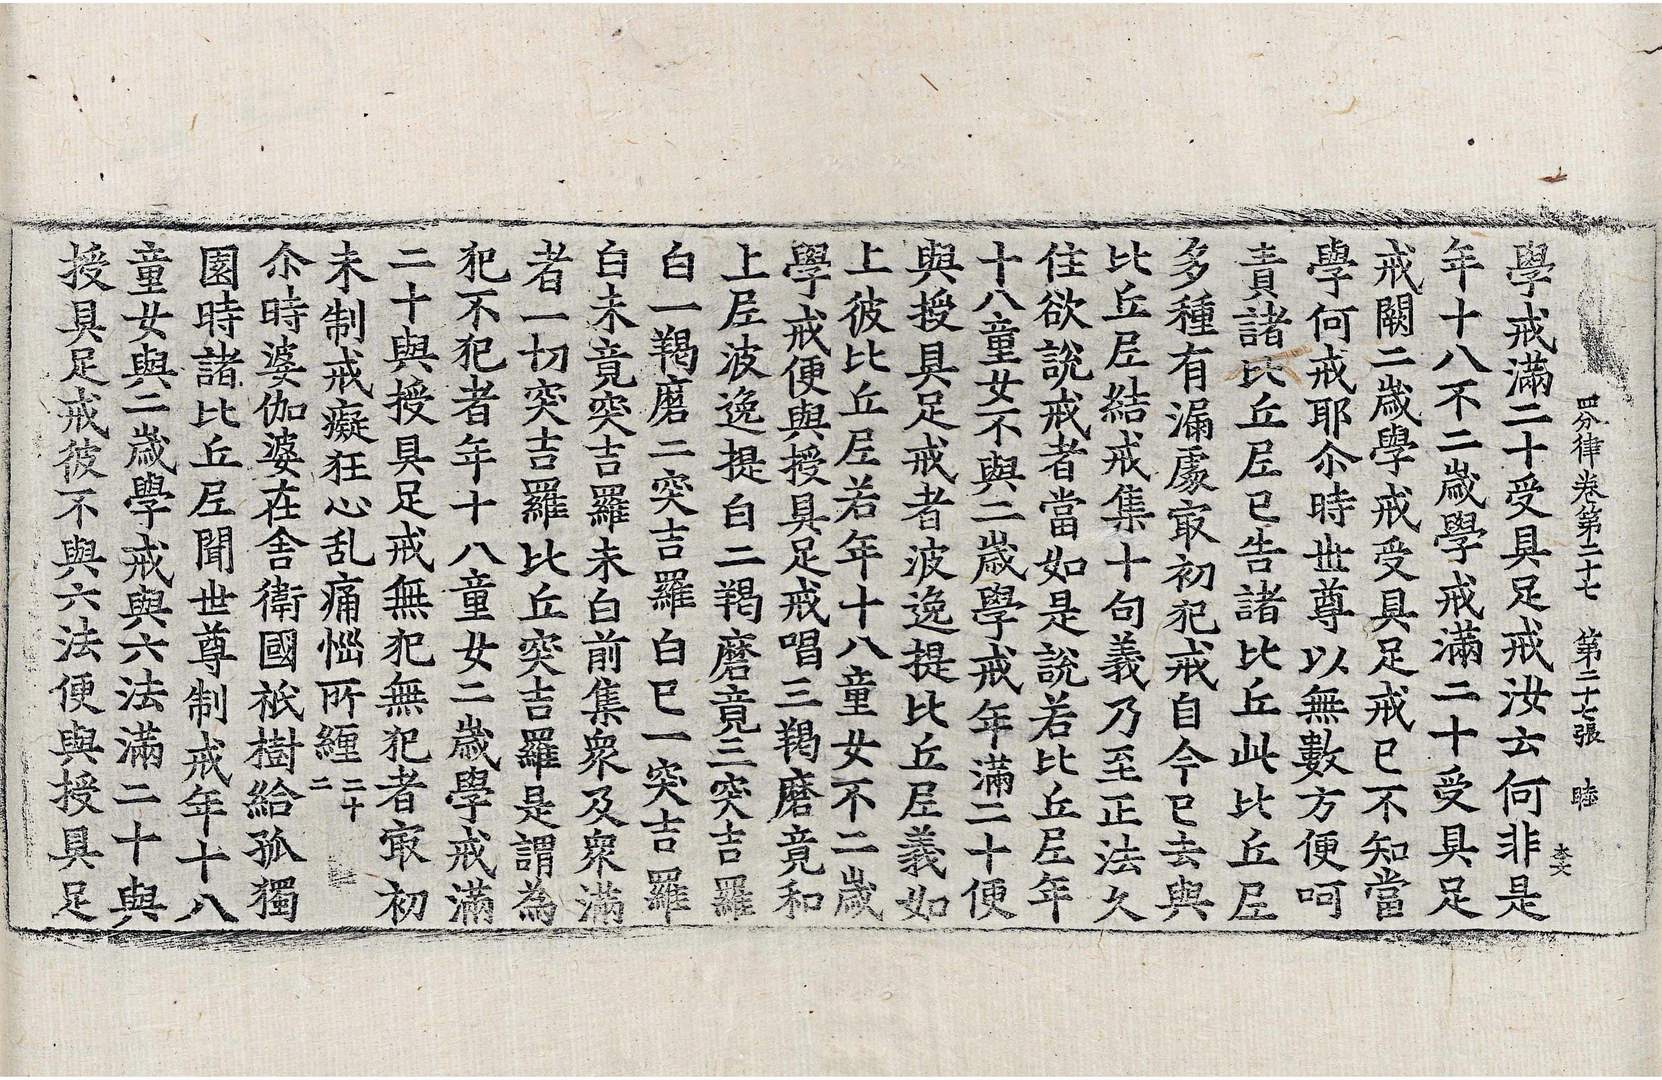 四分律卷第二十七　第二十七張　睦
學戒滿二十受具足戒汝云何非是
年十八不二歲學戒滿二十受具足
戒闕二歲學戒受具足戒已不知當
學何戒耶尒時世尊以無數方便呵
責諸比丘尼已告諸比丘此比丘尼
多種有漏處㝡初犯戒自今已去與
比丘尼結戒集十句義乃至正法久
住欲說戒者當如是說若比丘尼年
十八童女不與二歲學戒年滿二十便
與授具足戒者波逸提比丘尼義如
上彼比丘尼若年十八童女不二歲
學戒便與授具足戒唱三羯磨竟和
上尼波逸提白二羯磨竟三突吉羅
白一羯磨二突吉羅白已一突吉羅
白未竟突吉羅未白前集衆及衆滿
者一切突吉羅比丘突吉羅是謂為
犯不犯者年十八童女二歲學戒滿
二十與授具足戒無犯無犯者㝡初
未制戒癡狂心乱痛惱所纏二十二
尒時婆伽婆在舍衛國祇樹給孤獨
園時諸比丘尼聞世尊制戒年十八
童女與二歲學戒與六法滿二十與
授具足戒彼不與六法便與授具足